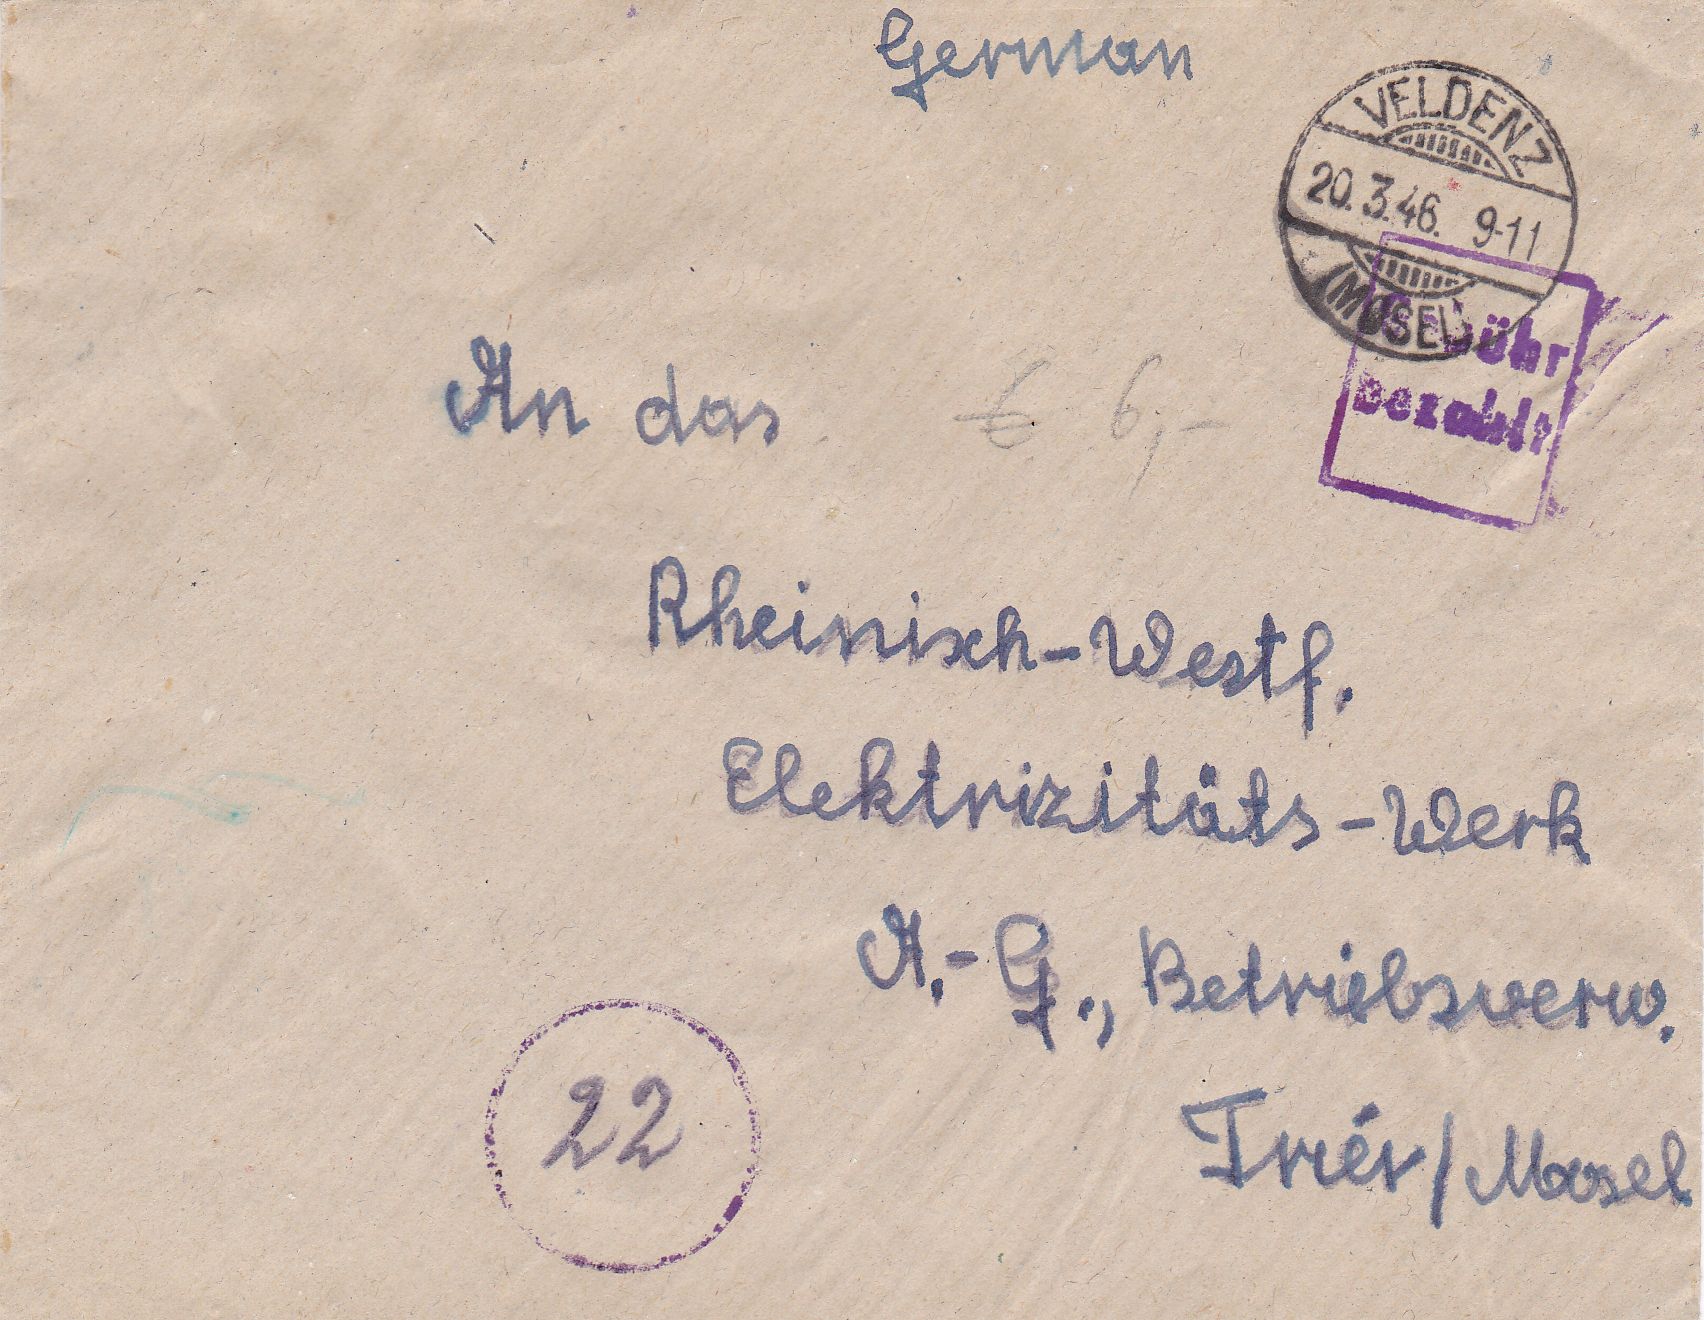 German
VELDENZ
20.3.46. 9-11
(MOSEL)
Gebühr
bezahlt
An das
€ 6,-
Rheinisch-Westf.
Elektrizitäts-Werk
A.-G., Betriebsverw.
Trier/Mosel
22